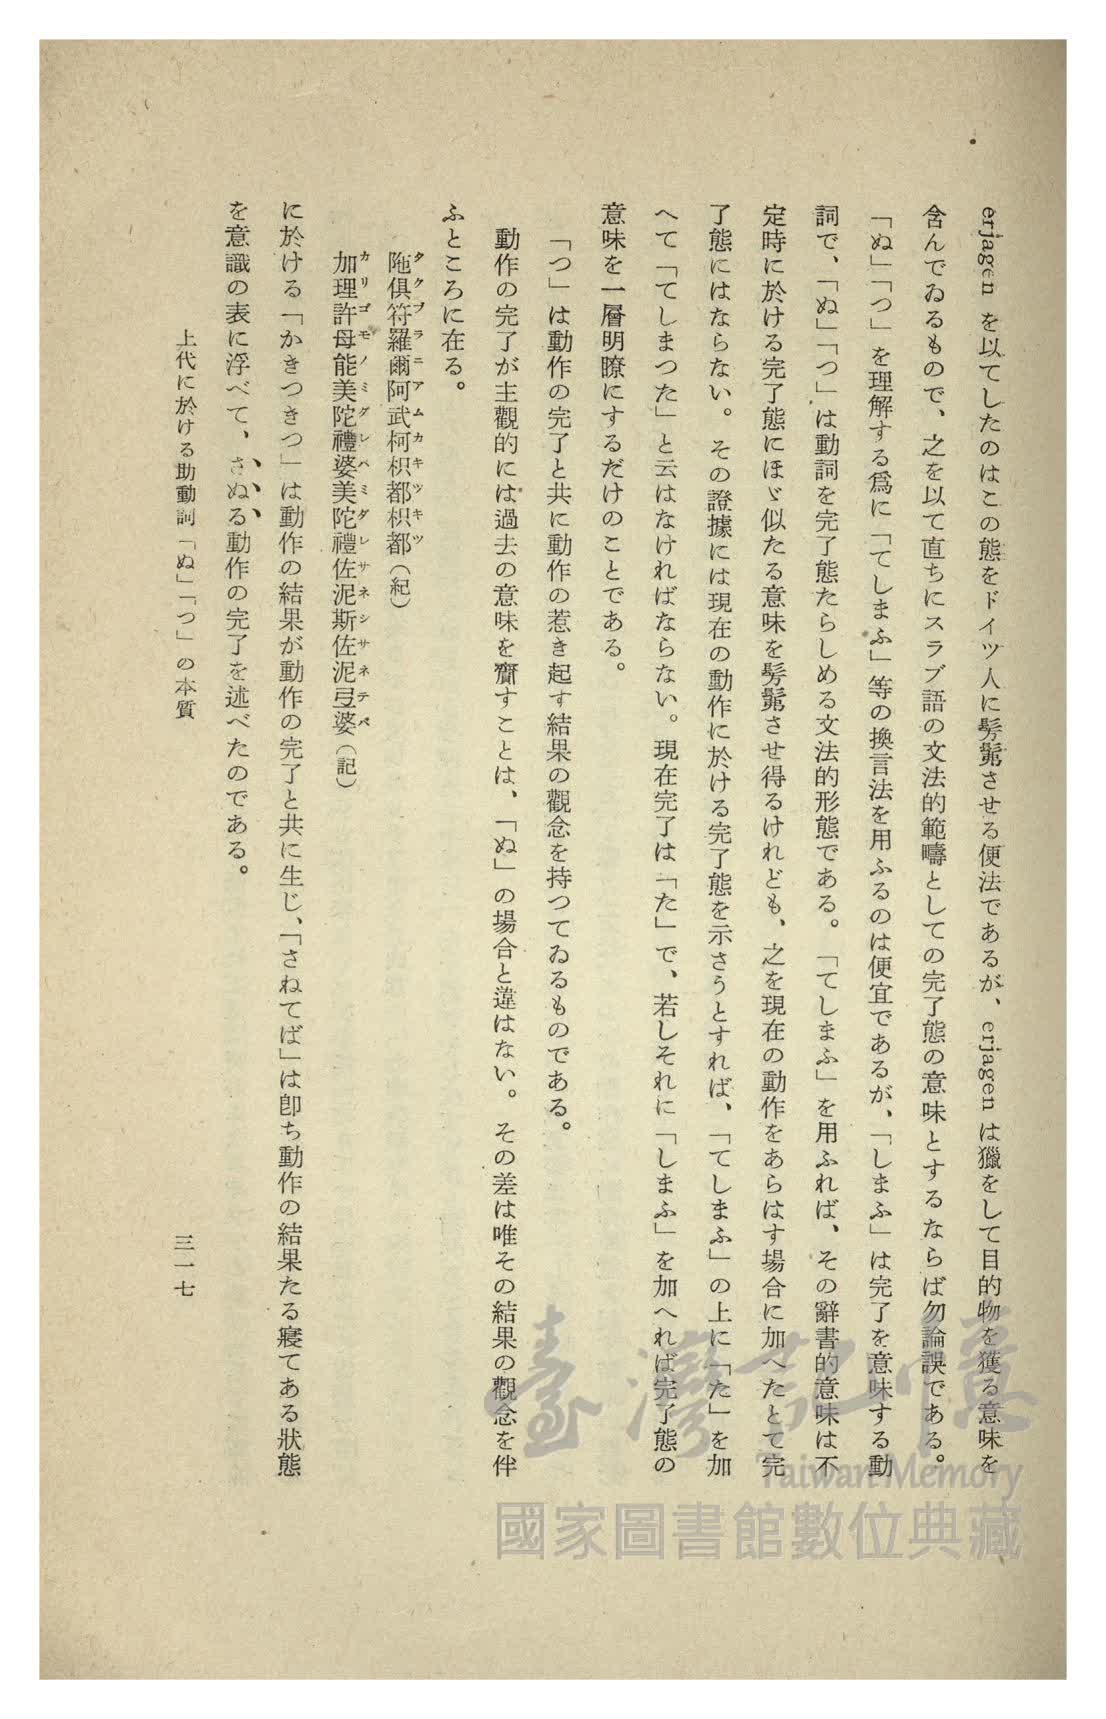 erjagen を以てしたのはこの態をドイツ人に髣髴させる便法であるが、erjagen は獵をして目的物を獲る意味を
含んでゐるもので、之を以て直ちにスラブ語の文法的範疇としての完了態の意味とするならば勿論誤である。
「ぬ」「つ」を理解する爲に「てしまふ」等の換言法を用ふるのは便宜であるが、「しまふ」は完了を意味する動
詞で、「ぬ」「つ」は動詞を完了態たらしめる文法的形態である。「てしまふ」を用ふれば、その辭書的意味は不
定時に於ける完了態にほゞ似たる意味を髣髴させ得るけれども、之を現在の動作をあらはす場合に加へたとて完
了態にはならない。その證據には現在の動作に於ける完了態を示さうとすれば、「てしまふ」の上に「た」を加
へて「てしまつた」と云はなければならない。現在完了は「た」で、若しそれに「しまふ」を加へれば完了態の
意味を一層明瞭にするだけのことである。
「つ」は動作の完了と共に動作の惹き起す結果の觀念を持つてゐるものである。
動作の完了が主觀的には過去の意味を齎すことは、「ぬ」の場合と違はない。その差は唯その結果の觀念を伴
ふところに在る。
陁倶符羅爾阿武柯枳都枳都（紀）
タクブラニアムカキツキツ
加理許母能美陀禮婆美陀禮佐泥斯佐泥弖婆（記）
カリゴモノミグレバミダレサネシサネテバ
に於ける「かきつきつ」は動作の結果が動作の完了と共に生じ、「さねてば」は卽ち動作の結果たる寢てある狀態
を意識の表に浮べて、さぬる動作の完了を述べたのである。
上代に於ける助動詞「ぬ」「つ」の本質
三一七
臺灣記憶
Taiwan Memory
國家圖書館數位典藏